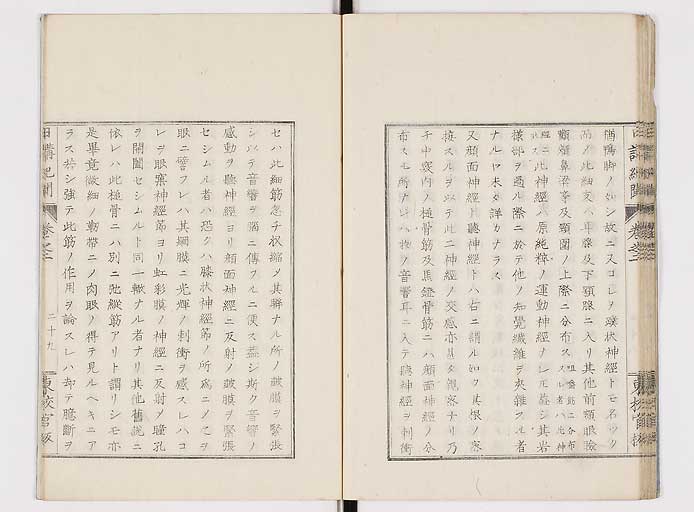 鵞脚ノ如シ故ニ又コレヲ蹼状神經トモ名ツク
此ノ細支ハ耳腺及下顎腺ニ入リ其他前額眼瞼
顴頬鼻梁等及顎圍ノ上際ニ分布ス
此神經ハ原純粹ノ運動神經ナレ𪜈蓋シ其岩
樣部ヲ過ル際ニ於テ他ノ知覺纖維ヲ夾雜スル者
ナルヤ未タ詳カナラス
又顔面神經ト聽神經トハ右ニ謂ル如ク其根ノ密
接スルヲ以テ此二神經ノ交感亦甚タ親密ナリ乃
チ中竅内ノ槌骨筋及馬鐙骨筋ニハ顔面神經ノ分
布スル所ナレハ ノ音響耳ニ入テ聽神經ヲ刺衝
セハ此細筋忽チ收縮メ其辦ナル所ノ皷膜ヲ緊張
シ以テ音響ヲ腦ニ傳フルニ便ス蓋シ斯ク音響ノ
感動ヲ聽神經ヨリ顔面神經ニ反射メ皷膜ヲ緊張
セシムル者ハ恐クハ膝状神經節ノ所爲ニメ之ヲ
眼ニ譬フレハ其網膜ニ光輝ノ刺衝ヲ感スレハコ
レヲ眼窠神經節ヨリ虹彩膜ノ神經ニ反射メ瞳孔
ヲ開闔セシムルト同一轍ナル者ナリ其他舊説ニ
依レハ此槌骨ニハ別ニ弛縱筋アリト謂リシモ亦
是畢竟微細ノ勒帶ニメ肉眼ノ得テ見ルヘキニア
ラス若シ強テ此筋ノ作用ヲ論スレハ却テ臆斷ヲ
日講紀聞
卷之二
二十九
東校官版